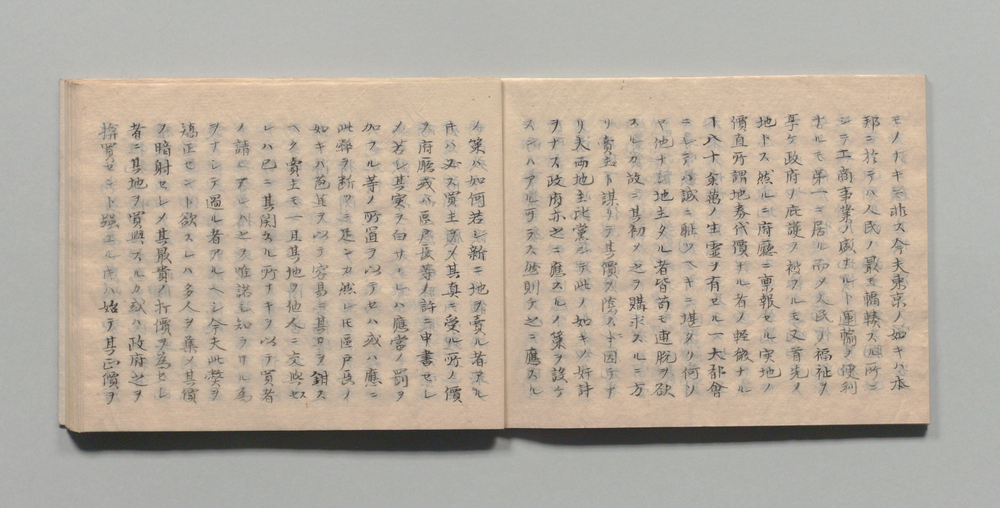 モノナキニ非ス今夫東京ノ如キハ本
邦ニ於テハ人民ノ最モ輻輳スル所ニ
シテ工商事業ノ盛ナルト運輸ノ便利
ナルモ第一ニ居ル而メ人民ノ福祉ヲ
享ケ政府ノ庇護ヲ被フルモ又首先ノ
地トス然ルニ府廳ニ稟報セル宅地ノ
價直所謂地券代價ナル者ノ軽微ナル
八十余萬ノ生靈ヲ有セル一大都會
ニシテハ誠ニ耻ツヘキニ堪タリ何ソ
ヤ他ナシ地主タル者皆苟モ逋脱ヲ欲
スルカ故ニ其初メ之ヲ購求スルニ方
リ賣主ト謀リテ其價ヲ陰ス
リ夫両地主比黨シテ此ノ如キノ奸計
ヲナス政府亦之ニ應スルノ策ヲ設ケ
スンハアル可ラス然則チ之ニ應スル
ノ策ハ如何若シ新ニ地ヲ賣ル者アル
片ハ必ス買主ヲメ其真ニ受ル所ノ價
ヲ府廳或ハ區戸長等ノ許ニ申書セシ
メ若シ其実ヲ白サヽレハ應當ノ罰ヲ
加フル等ノ所置ヲ以テセハ或ハ應ニ
此弊ヲ断ツニ足ンカ然レ圧區戸長ノ
如キハ苞苴ヲ以テ容易ニ其口ヲ鉗ス
ヘク賣主モ一旦其地ヲ他人ニ交與セ
レハ已ニ其関スル所ナキヲ以テ買者
ノ請ヒアレハ之ヲ唯諾シ知ラサル為
ヲナシテ過ル者アルヘシ今夫此弊ヲ
矯正セント欲スレハ多人ヲ集メ其價
ヲ暗射セシメ其最貴ノ打價ヲ為セシ
者ニ其地ヲ買與スルカ或ハ政府之ヲ
損買セント強ユル片ハ始テ其正價ヲ